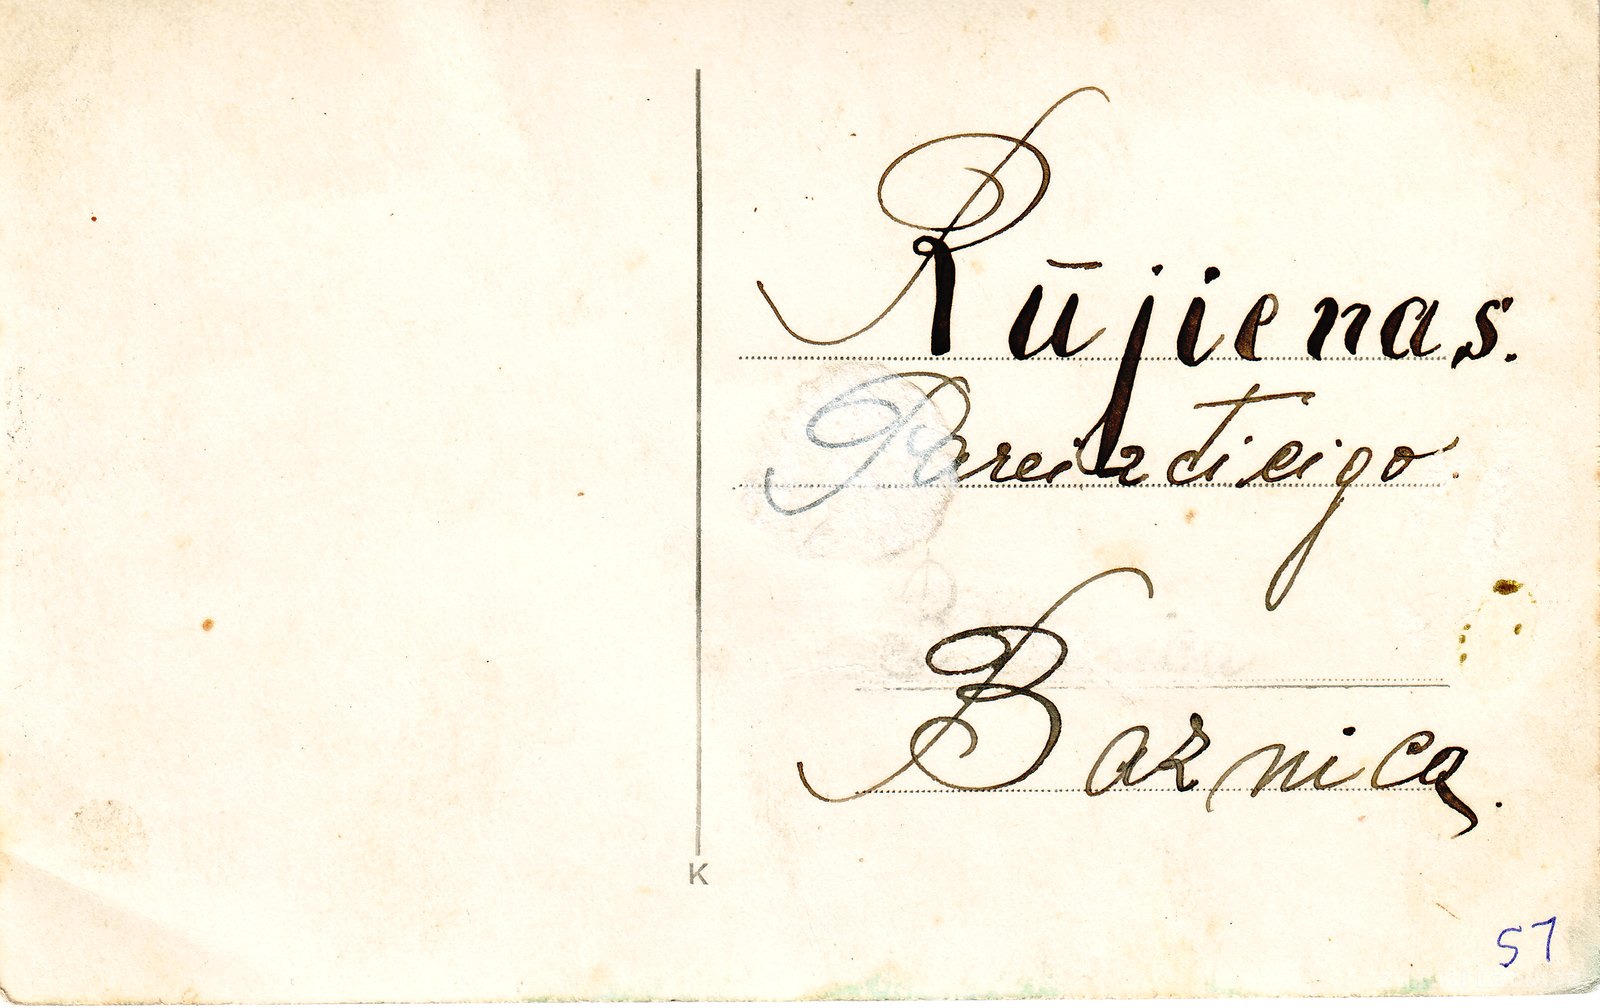 Rūjienas.
Pareizticigo
Baznica.
K
57